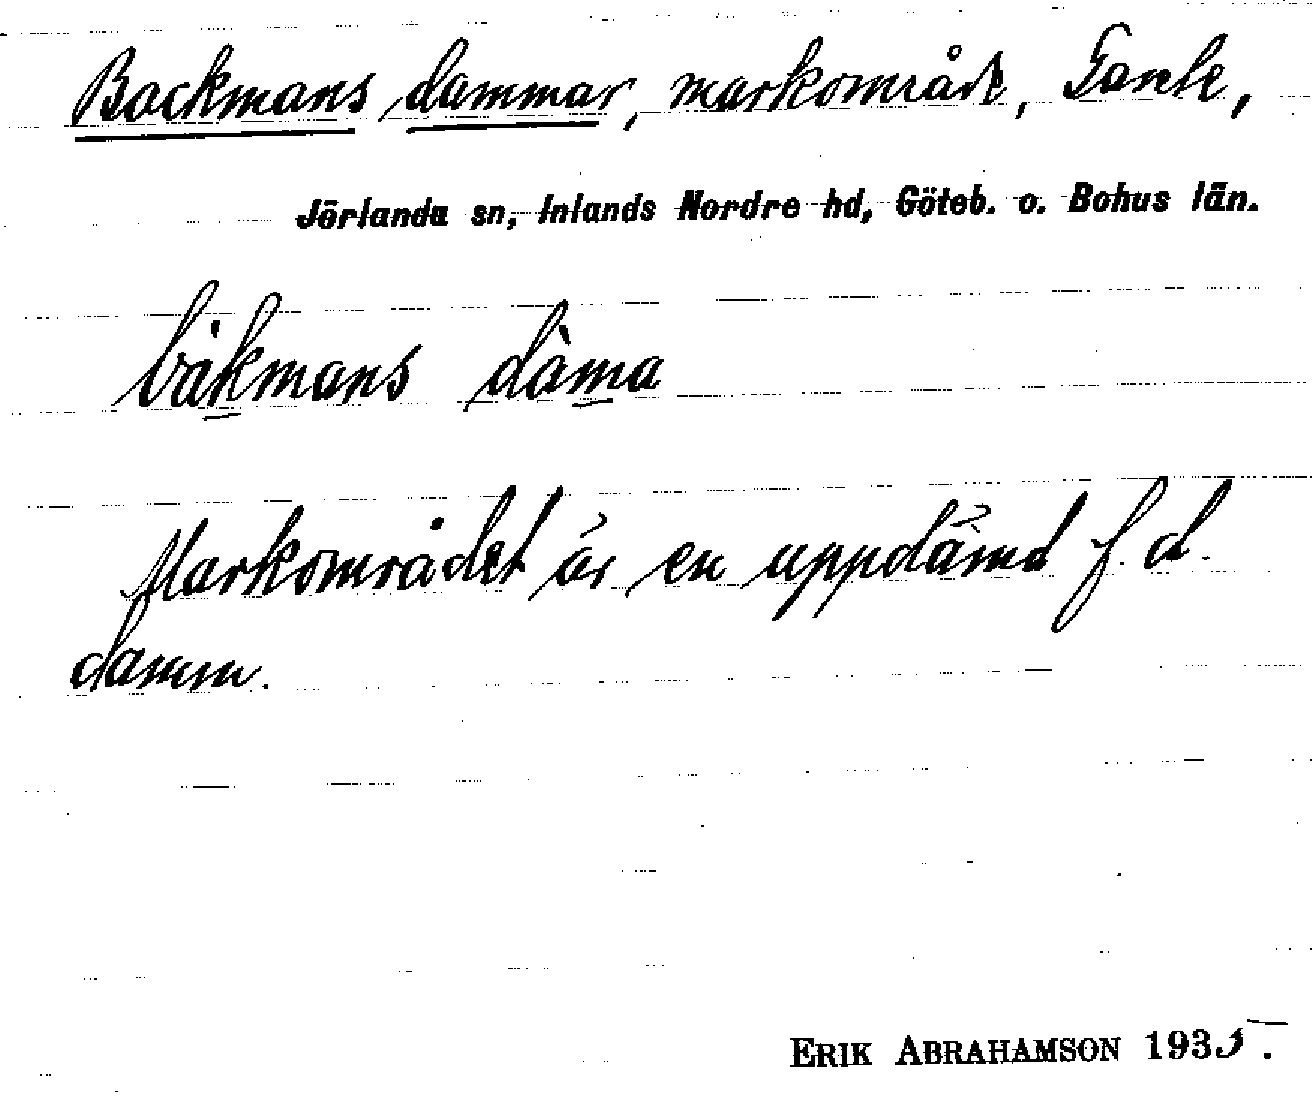 Backmans dammar, markområde, Tante,
Jörlanda sn, Inlands Nordre hd, Göteb. o. Bohus län.
bàkmans dàma
Markområdet är en uppdämd f. d.
damm.
ERIK ABRAHAMSON 1935.